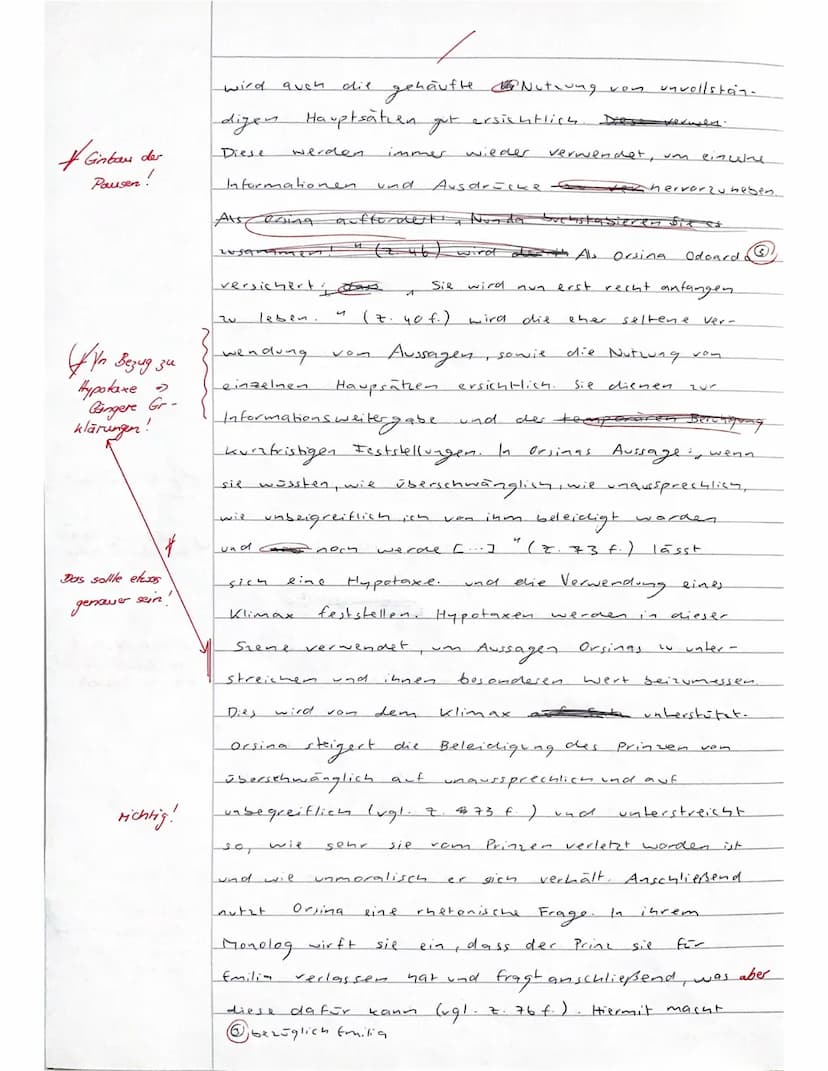 wird auch die gehäufte Nutzung von unvollstän-
digen Hauptsätzen gut ersichtlich. Diese verwen-
Einbau der
Pausen!
Diese werden immer wieder verwendet, um einzelne
Informationen und Ausdrücke hervorzuheben.
Als Orsina auffordert: „Nun da buchstabieren Sie es
zusammen!" (Z. 46) wird Als Orsina Odoardo ⑤
versichert: „Sie wird nun erst recht anfangen
zu leben." (Z. 40 f.) wird die eher seltene Ver-
In Bezug zu
Hypotaxe =>
längere Er-
klärungen!
wendung von Aussagen, sowie die Nutzung von
einzelnen Haupsätzen ersichtlich. Sie dienen zur
Informationsweitergabe und der temporären Beruhigung
kurzfristigen Feststellungen. In Orsinas Aussage: „wenn
sie wüssten, wie überschwänglich, wie unaussprechlich,
wie unbegreiflich ich von ihm beleidigt worden
und noch werde [...]" (Z. 73 f.) lässt
Das sollte etwas
genauer sein!
sich eine Hypotaxe und die Verwendung eines
Klimax feststellen. Hypotaxen werden in dieser
Szene verwendet, um Aussagen Orsinas zu unter-
streichen und ihnen besonderen Wert beizumessen.
Dies wird von dem Klimax unterstützt.
Orsina steigert die Beleidigung des Prinzen von
überschwänglich auf unaussprechlich und auf
richtig!
unbegreiflich (vgl. Z. 73 f.) und unterstreicht
so, wie sehr sie vom Prinzen verletzt worden ist
und wie unmoralisch er sich verhält. Anschließend
nutzt Orsina eine rhetorische Frage. In ihrem
Monolog wirft sie ein, dass der Prinz sie für
Emilia verlassen hat und fragt anschließend, was aber
diese dafür kann (vgl. Z. 76 f.). Hiermit macht
⑤ bezüglich Emilia